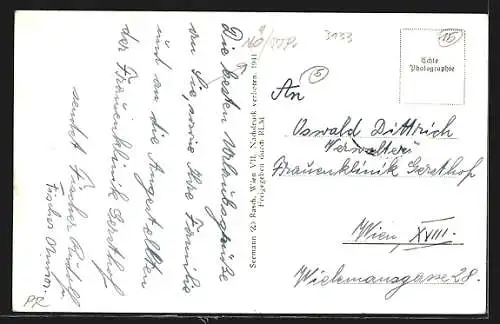 Die besten Urlaubsgrüße
an Sie, sowie Ihre Familie
und an die Angestellten
der Frauenklinik Gersthof
sendet Fischer Rudolf
Fischer
Seemann (Z) Rasch, Wien VII, Nachdruck verboten. 1941
Freigegeben durch RLM
3133
15
5
Echte
Photographie
An
Oswald Dittrich
Verwalter
Frauenklinik Gersthof
Wien, XVIII.
Wielemansgasse 28.
PR